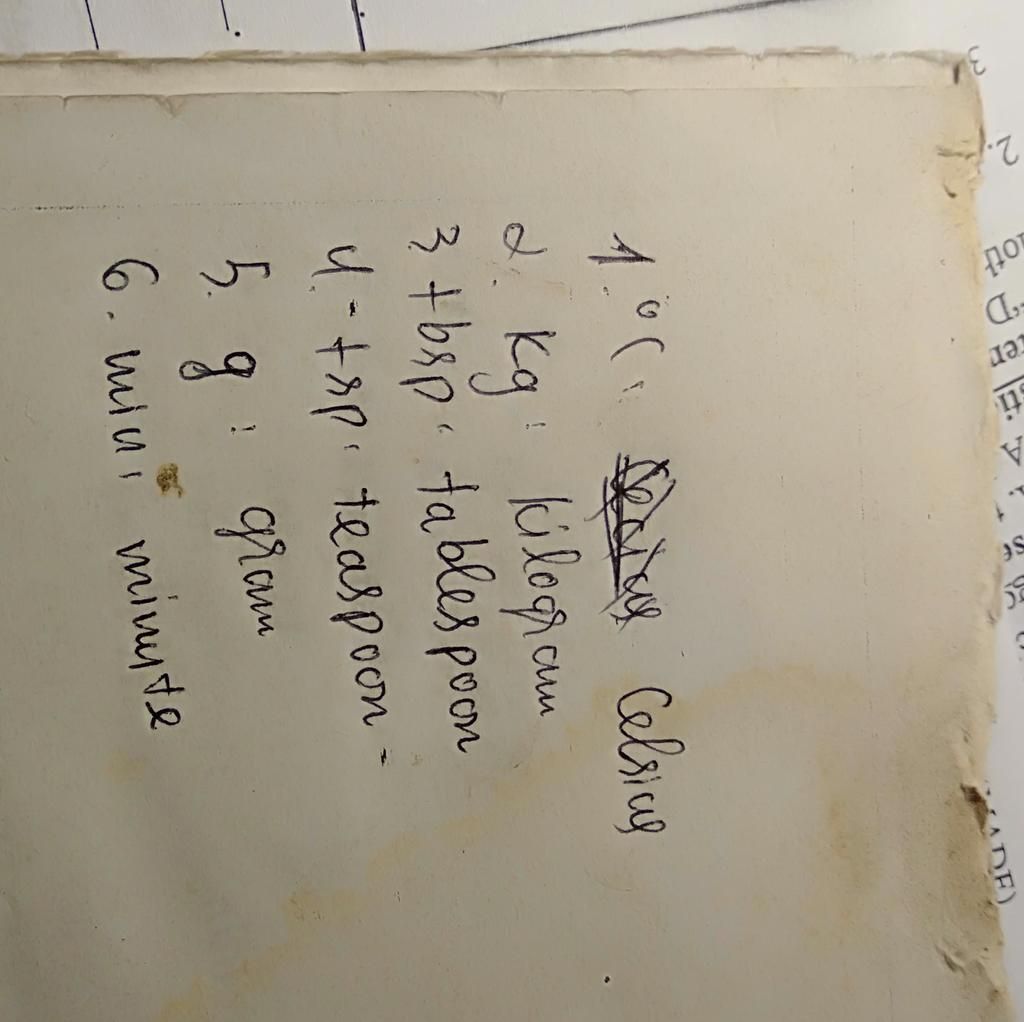 1. °C: Celsius
2. kg: kilogram
3 tbsp: tablespoon
4. - tsp: teaspoon -
5. g: gram
6. min: minute
3
2.